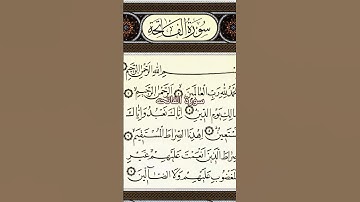 سورة الفاتحة
بسم الله الرحمن الرحيم
لله رب العالمين الرحمن الرحيم
سورة الفاتحه
مالك يوم الدين إياك نعبد وإياك
نستعين اهدنا الصراط المستقيم
صراط الذين أنعمت عليهم غير
المغضوب عليهم ولا الضالين